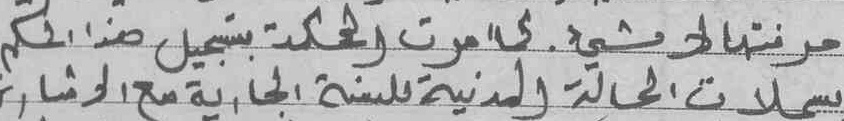 مرنتها او مشيج. كما امرت المحكمة بتسجيل هذا الحكم
بسجلات الحالة المدنية للسنة الجارية مع الاشارة